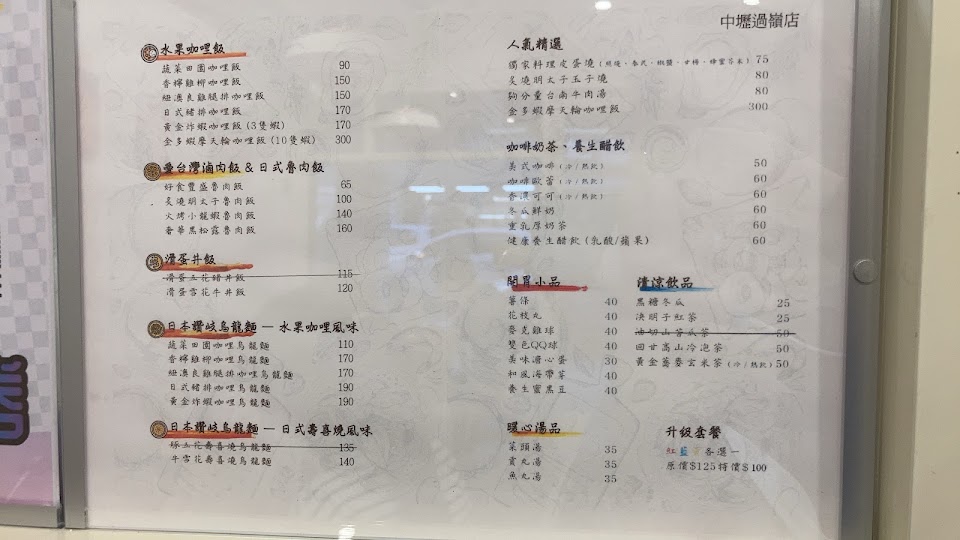 中壢過嶺店
水果咖哩飯
蔬菜田園咖哩飯 90
香檸雞柳咖哩飯 150
紐澳良雞腿排咖哩飯 150
日式豬排咖哩飯 170
黃金炸蝦咖哩飯(3隻蝦) 170
金多蝦摩天輪咖哩飯(10隻蝦) 300
台灣滷肉飯&日式魯肉飯
好食豐盛魯肉飯 65
炙燒明太子魯肉飯 100
火烤小龍蝦魯肉飯 140
奢華黑松露魯肉飯 160
滑蛋丼飯
滑蛋五花豬丼飯 115
滑蛋雪花牛丼飯 120
日本讚岐烏龍麵 — 水果咖哩風味
蔬菜田園咖哩烏龍麵 110
香檸雞柳咖哩烏龍麵 170
紐澳良雞腿排咖哩烏龍麵 170
日式豬排咖哩烏龍麵 190
黃金炸蝦咖哩烏龍麵 190
日本讚岐烏龍麵 — 日式壽喜燒風味
豚五花壽喜燒烏龍麵 135
牛雪花壽喜燒烏龍麵 140
人氣精選
獨家料理皮蛋燒 75
炙燒明太子玉子燒 80
夠分量台南牛肉湯 80
金多蝦摩天輪咖哩飯 300
咖啡奶茶、養生醋飲
美式咖啡(冷/熱飲) 50
咖啡歐蕾(冷/熱飲) 60
香濃可可(冷/熱飲) 60
冬瓜鮮奶 60
重乳厚奶茶 60
健康養生醋飲(乳酸/蘋果) 60
開胃小品
薯條 40
花枝丸 40
麥克雞球 40
雙色QQ球 40
美味溏心蛋 30
和風海帶芽 40
養生蜜黑豆 40
清涼飲品
黑糖冬瓜 25
決明子紅茶 25
油切山苦瓜茶 50
回甘高山冷泡茶 50
黃金蕎麥玄米茶(冷/熱飲) 50
暖心湯品
菜頭湯 35
貢丸湯 35
魚丸湯 35
升級套餐
紅藍黃各選一
原價$125特價$100